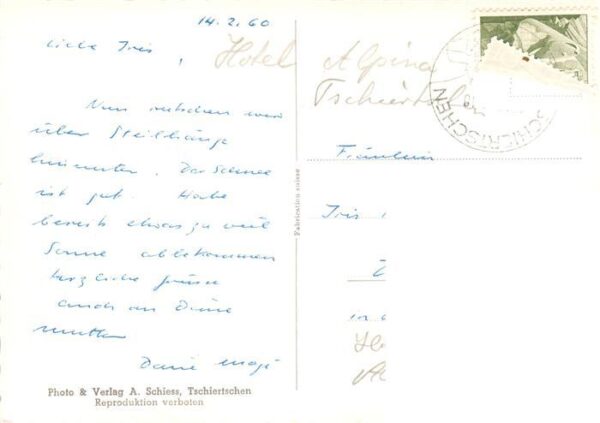 14.2.60
Liebe Iris,
Hotel Alpina
Nun rutschen wir
über Steilhänge
hinunter. Der Schnee
ist gut. Habe
bereits etwas zu viel
Sonne abbekommen
herzliche Grüsse
auch an Deine
Mutter
Photo & Verlag A. Schiess, Tschiertschen
Reproduktion verboten
Fabrication suisse
TSCHIERTSCHEN
Fräulein
Iris